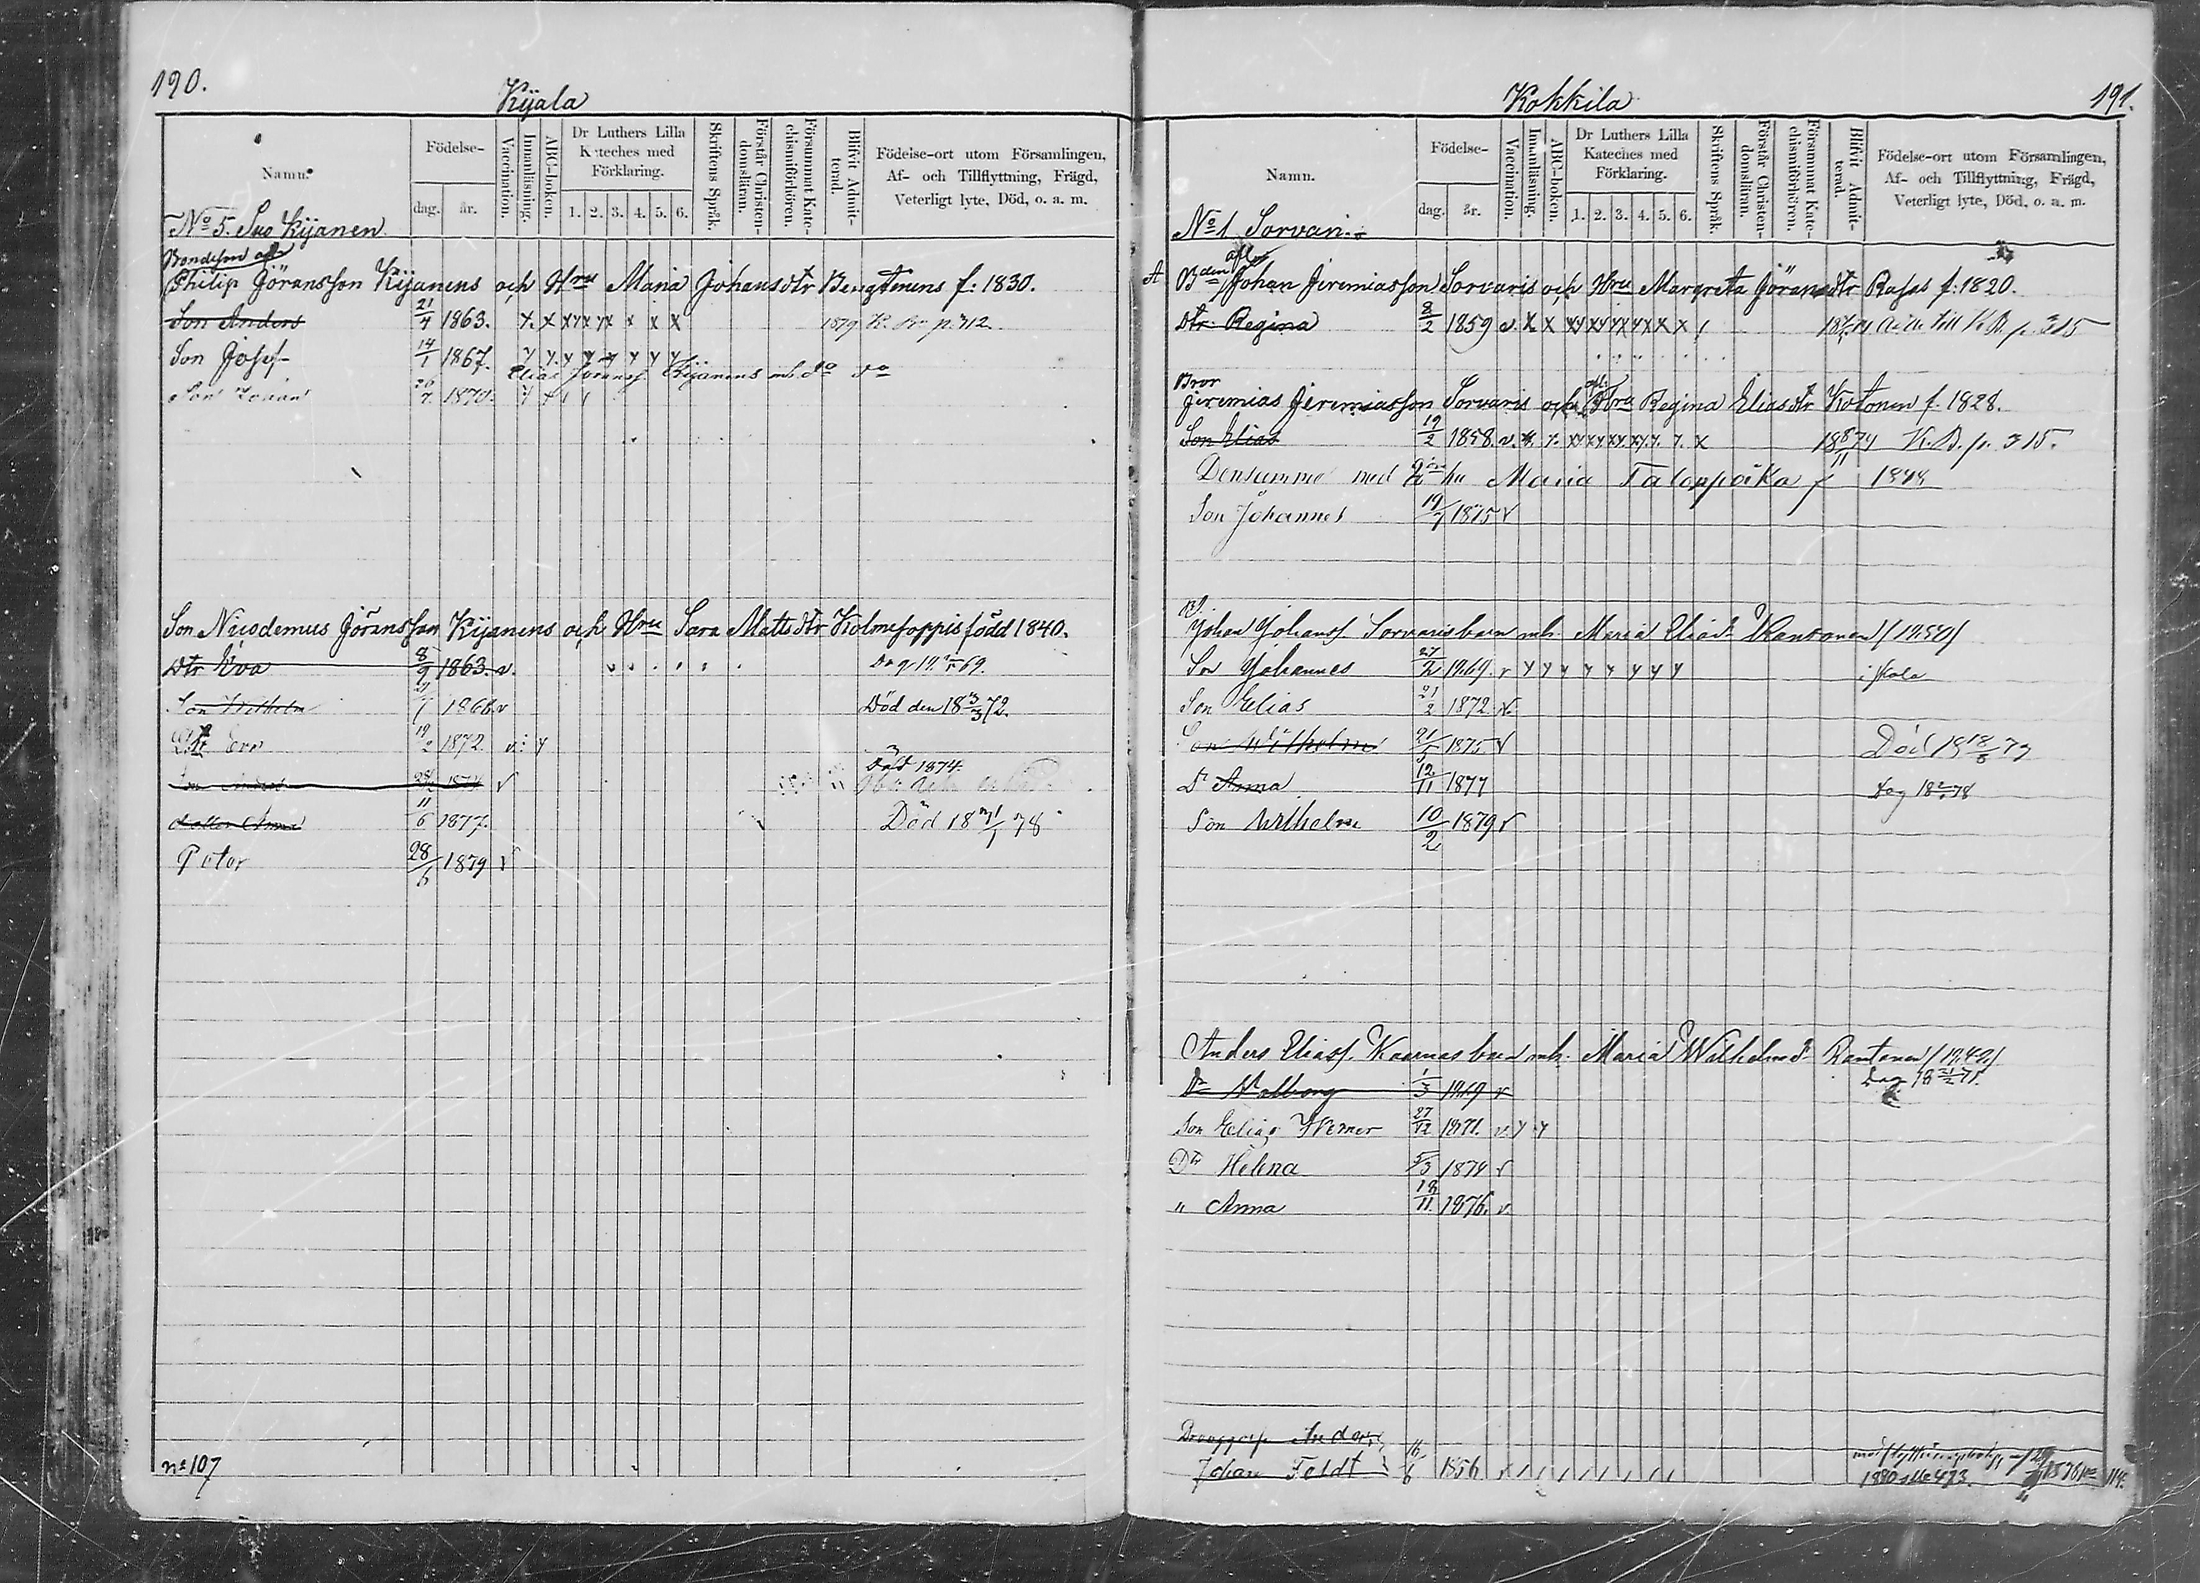 190.
Kijala
Namn.
Födelse-
dag.
år.
Vaccination.
Innanläsning.
ABC-boken.
Dr Luthers Lilla
Kateches med
Förklaring.
1. 2. 3. 4. 5. 6.
Skriftens Språk.
Förstår Christen-
domslifran.
Försummat Kate-
chismiförhören.
Blifvit Admit-
terad.
Födelse-ort utom Församlingen,
Af- och Tillflyttning, Frägd,
Veterligt lyte, Död, o. a. m.
No 5. Suo Kijanen
Bondeson
Philip Göransson Kijanens och Hru Maria Johansdtr Bengtinens f. 1830.
Son Anders 21/4 1863. x. x x x x x x 1879 K. B. p. 312
Son Josef 14/1 1867.
Elias Göranss. Kijanens mh. do do
Son Johan 1870.
Son Nicodemus Göransson Kijanens och Hru Sara Mattsdtr Kolmesoppis född 1840.
Dtr Eva 8/9 1863. v.
Son Wilhelm 1866. v Död den 18 3/3 72.
Dtr Eva 19/2 1872. v. y
Död 1874.
Son Anders v
dotter Anna 11/6 1877. Död 18 78
Peter 28/6 1879 v
no 107
Kokkila
191.
Namn.
Födelse-
dag.
år.
Vaccination.
Innanläsning.
ABC-boken.
Dr Luthers Lilla
Kateches med
Förklaring.
1. 2. 3. 4. 5. 6.
Skriftens Språk.
Förstår Christen-
domslifran.
Försummat Kate-
chismiförhören.
Blifvit Admit-
terad.
Födelse-ort utom Församlingen,
Af- och Tillflyttning, Frägd,
Veterligt lyte, Död, o. a. m.
No 1 Sorvari
A Bden Johan Jeremiasson Sorvaris och Hru Margreta Göransdtr Rasas f. 1820.
Dtr Regina 8/2 1859 v. x x till K. B. p. 315
Bror
Jeremias Jeremiasson Sorvaris och Hru Regina Eliasdtr Kotonen f. 1828.
Son Elias 19/2 1858. v. 18 8/11 74 K. B. p. 315.
Densamme med Maria Taloppoika f 1848
Son Johannes 19/7 1875 v
Johan Johanss. Sorvaris barn mh. Maria Eliasdr Rantanen (1850)
Son Johannes 27/2 1869. v y y y y y y y y i skola
Son Elias 21/2 1872. v.
Son Wilhelm 21/5 1875 v Död 18 18/8 79
Dr Anna 12/11 1877
Son Wilhelm 10/2 1879 v
Anders Eliass. Kaurnas barn mh. Maria Wilhelmsdr Rantanen (1849)
Dr Walborg 1/3 1869 v
Son Elias Werner 27/12 1871. v. y y
Dtr Helena 5/3 1874 v
" Anna 18/11 1876. v.
Anders
Johan Feldt 16/6 1856
1880 473.
114.